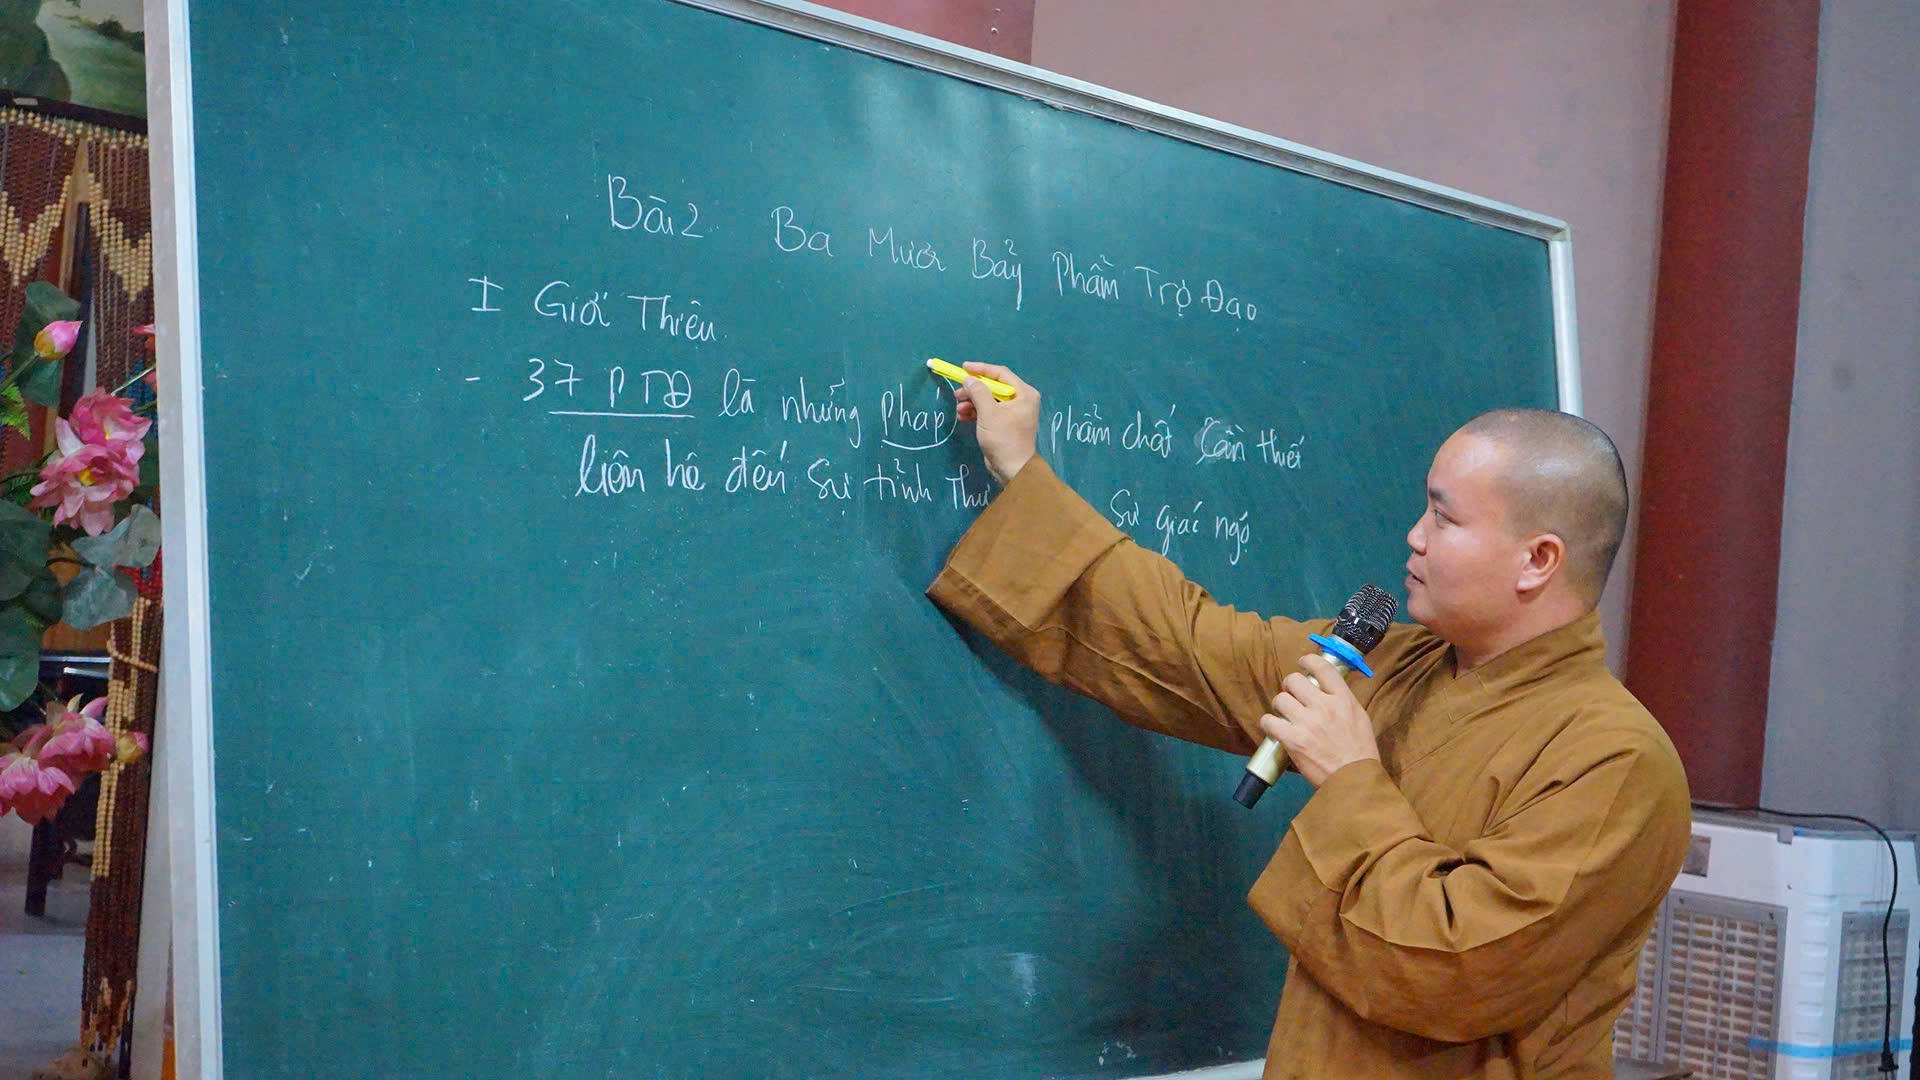 Bài 2 Ba Mươi Bảy Phẩm Trợ Đạo
I Giới Thiệu.
- 37 PTĐ là những pháp phẩm chất cần thiết
liên hệ đến sự tỉnh thứ sự giác ngộ